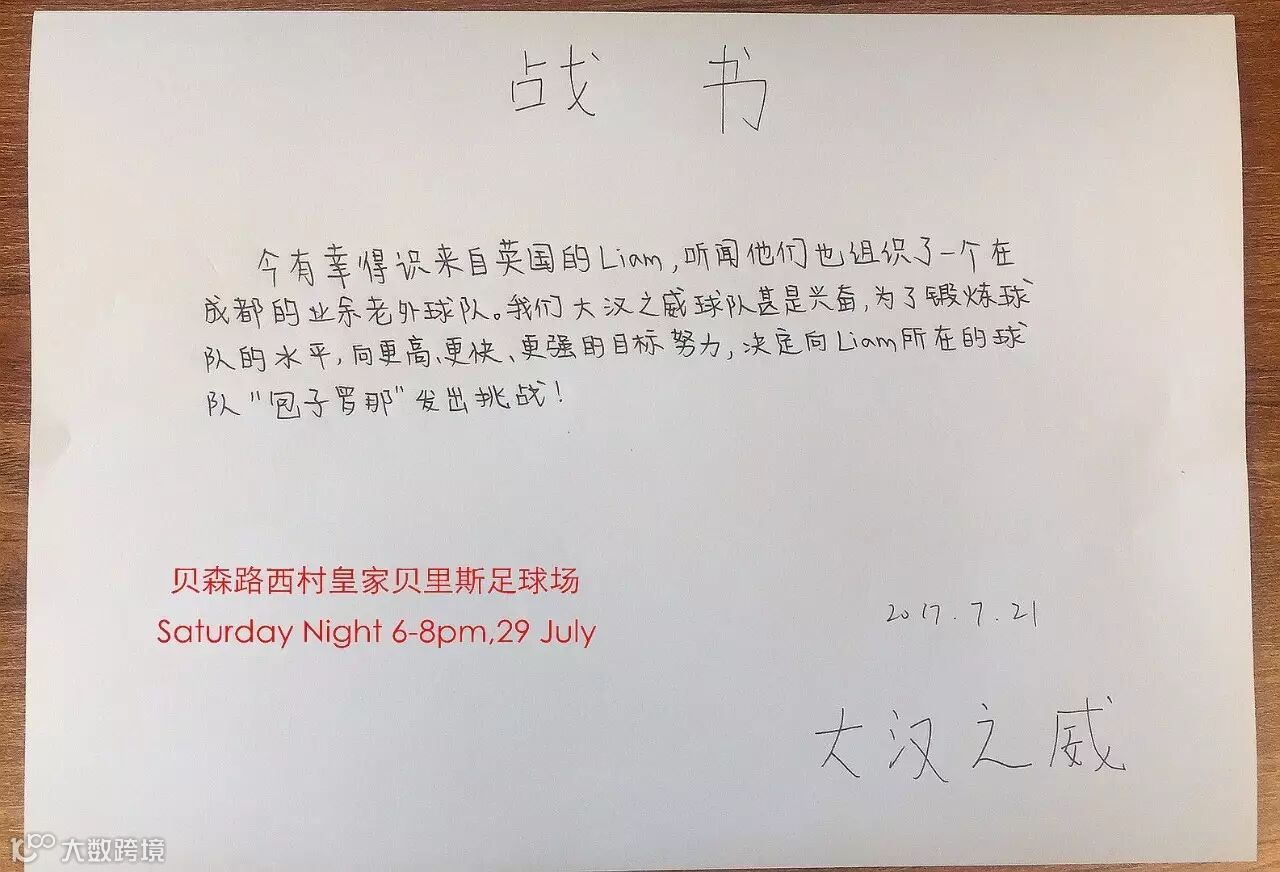 战 书
今有幸得识来自英国的Liam,听闻他们也组织了一个在
成都的业余老外球队。我们大汉之威球队甚是兴奋,为了锻炼球
队的水平,向更高、更快、更强的目标努力,决定向Liam所在的球
队“包子罗那”发出挑战!
贝森路西村皇家贝里斯足球场
Saturday Night 6-8pm,29 July
2017.7.21
大汉之威
大数跨境